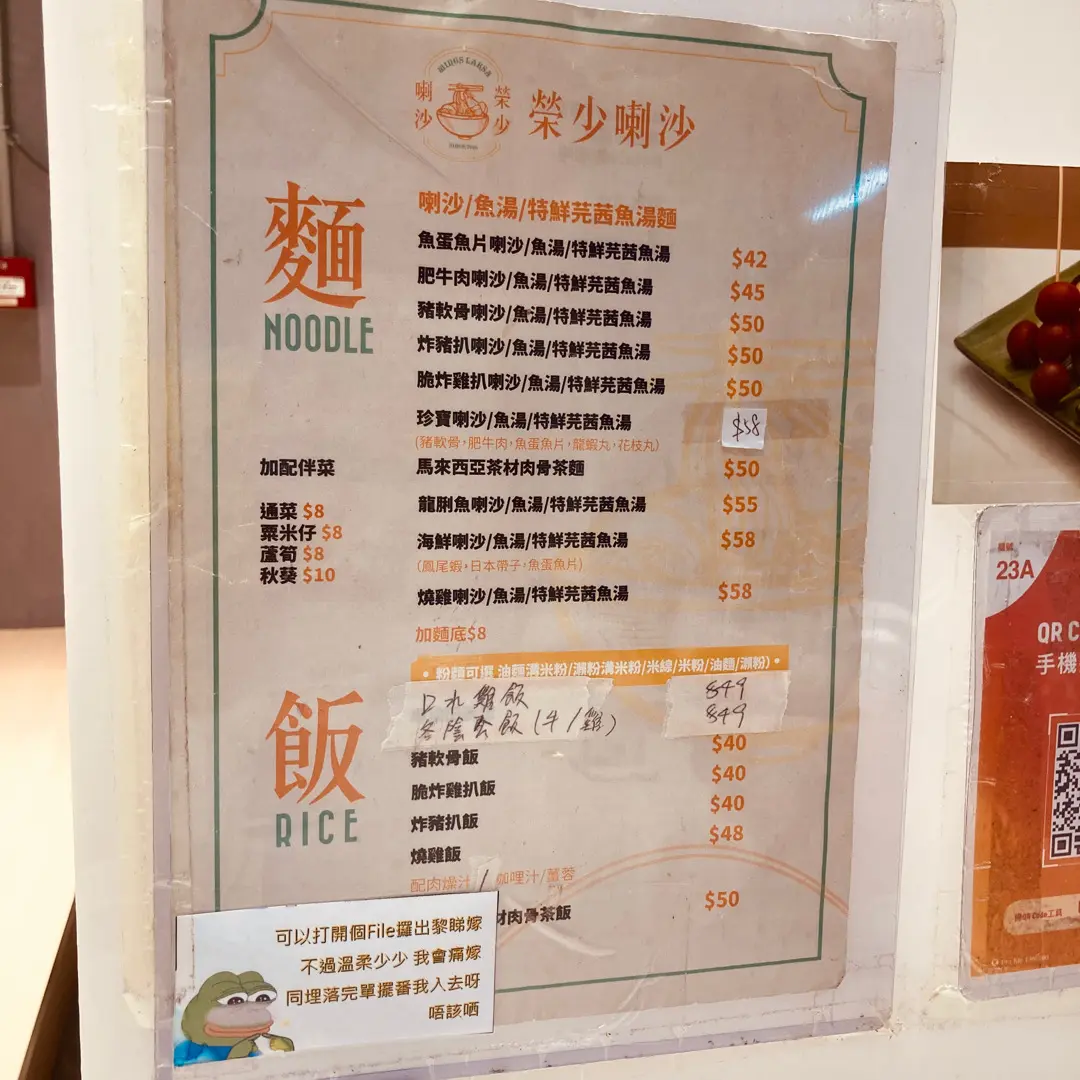 WINGS LAKSA
喇沙
榮少
榮少喇沙
麵
NOODLE
喇沙/魚湯/特鮮芫茜魚湯麵
魚蛋魚片喇沙/魚湯/特鮮芫茜魚湯 $42
肥牛肉喇沙/魚湯/特鮮芫茜魚湯 $45
豬軟骨喇沙/魚湯/特鮮芫茜魚湯 $50
炸豬扒喇沙/魚湯/特鮮芫茜魚湯 $50
脆炸雞扒喇沙/魚湯/特鮮芫茜魚湯 $50
珍寶喇沙/魚湯/特鮮芫茜魚湯 $58
(豬軟骨,肥牛肉,魚蛋魚片,龍蝦丸,花枝丸)
馬來西亞茶材肉骨茶麵 $50
龍脷魚喇沙/魚湯/特鮮芫茜魚湯 $55
海鮮喇沙/魚湯/特鮮芫茜魚湯 $58
(鳳尾蝦,日本帶子,魚蛋魚片)
燒雞喇沙/魚湯/特鮮芫茜魚湯 $58
加麵底$8
• 粉麵可選 油麵溝米粉/瀨粉溝米粉/米線/米粉/油麵/瀨粉) •
加配伴菜
通菜 $8
粟米仔 $8
蘆筍 $8
秋葵 $10
飯
RICE
口水雞飯 $49
冬陰公飯(牛/雞) $49
豬軟骨飯 $40
脆炸雞扒飯 $40
炸豬扒飯 $40
燒雞飯 $48
配肉燥汁/咖哩汁/薑蓉
材肉骨茶飯 $50
可以打開個File攞出黎睇嫁
不過溫柔少少 我會痛嫁
同埋落完單擺番我入去呀
唔該哂
23A
QR C
手機